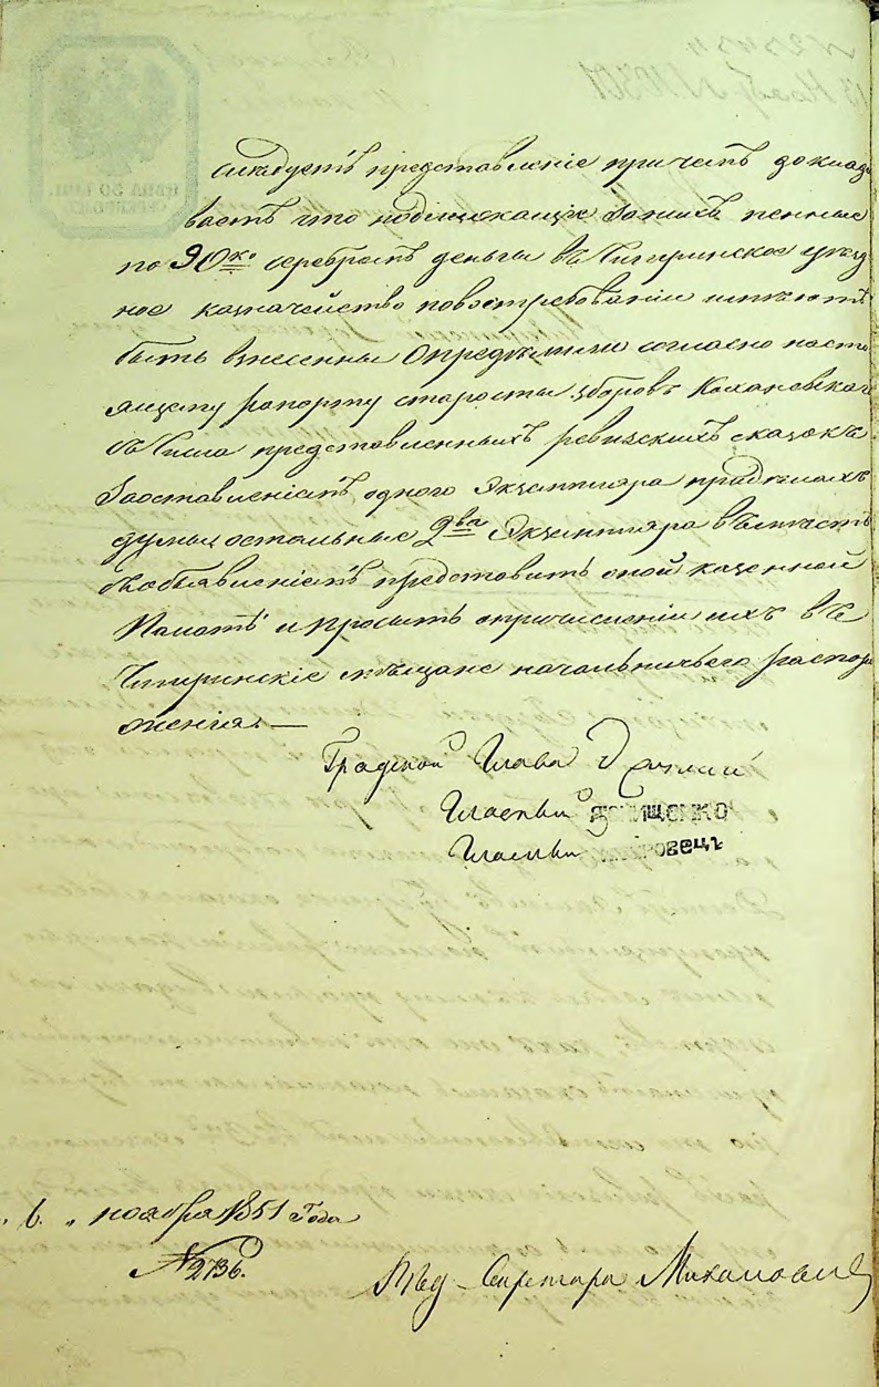 слѣдуетъ представленіе причемъ доклады
ваетъ что подлежащіе занихъ пенные
по 90 ко серебромъ деньги въ Чигиринское уѣзд
ное казначейство повостребованіи имѣютъ
быть внесенны Определили согласно насто
ящему рапорту старосты зборовъ Кохановскаго
съ числа представленныхъ ревизскихъ сказокъ
заоставленіемъ одного экземпляра придѣлахъ
думы остальные 2ва экземпляра вмѣстѣ
собъявленіемъ представить оной казенной
Палатѣ и просить опричисленіи ихъ въ
Чигиринскіе мѣщане начальничьего распоря
женія. —
Градской Глава
Гласный
Гласный ровецъ
„ 6. „ ноября 1851 Года
№ 2136.
Секретаря